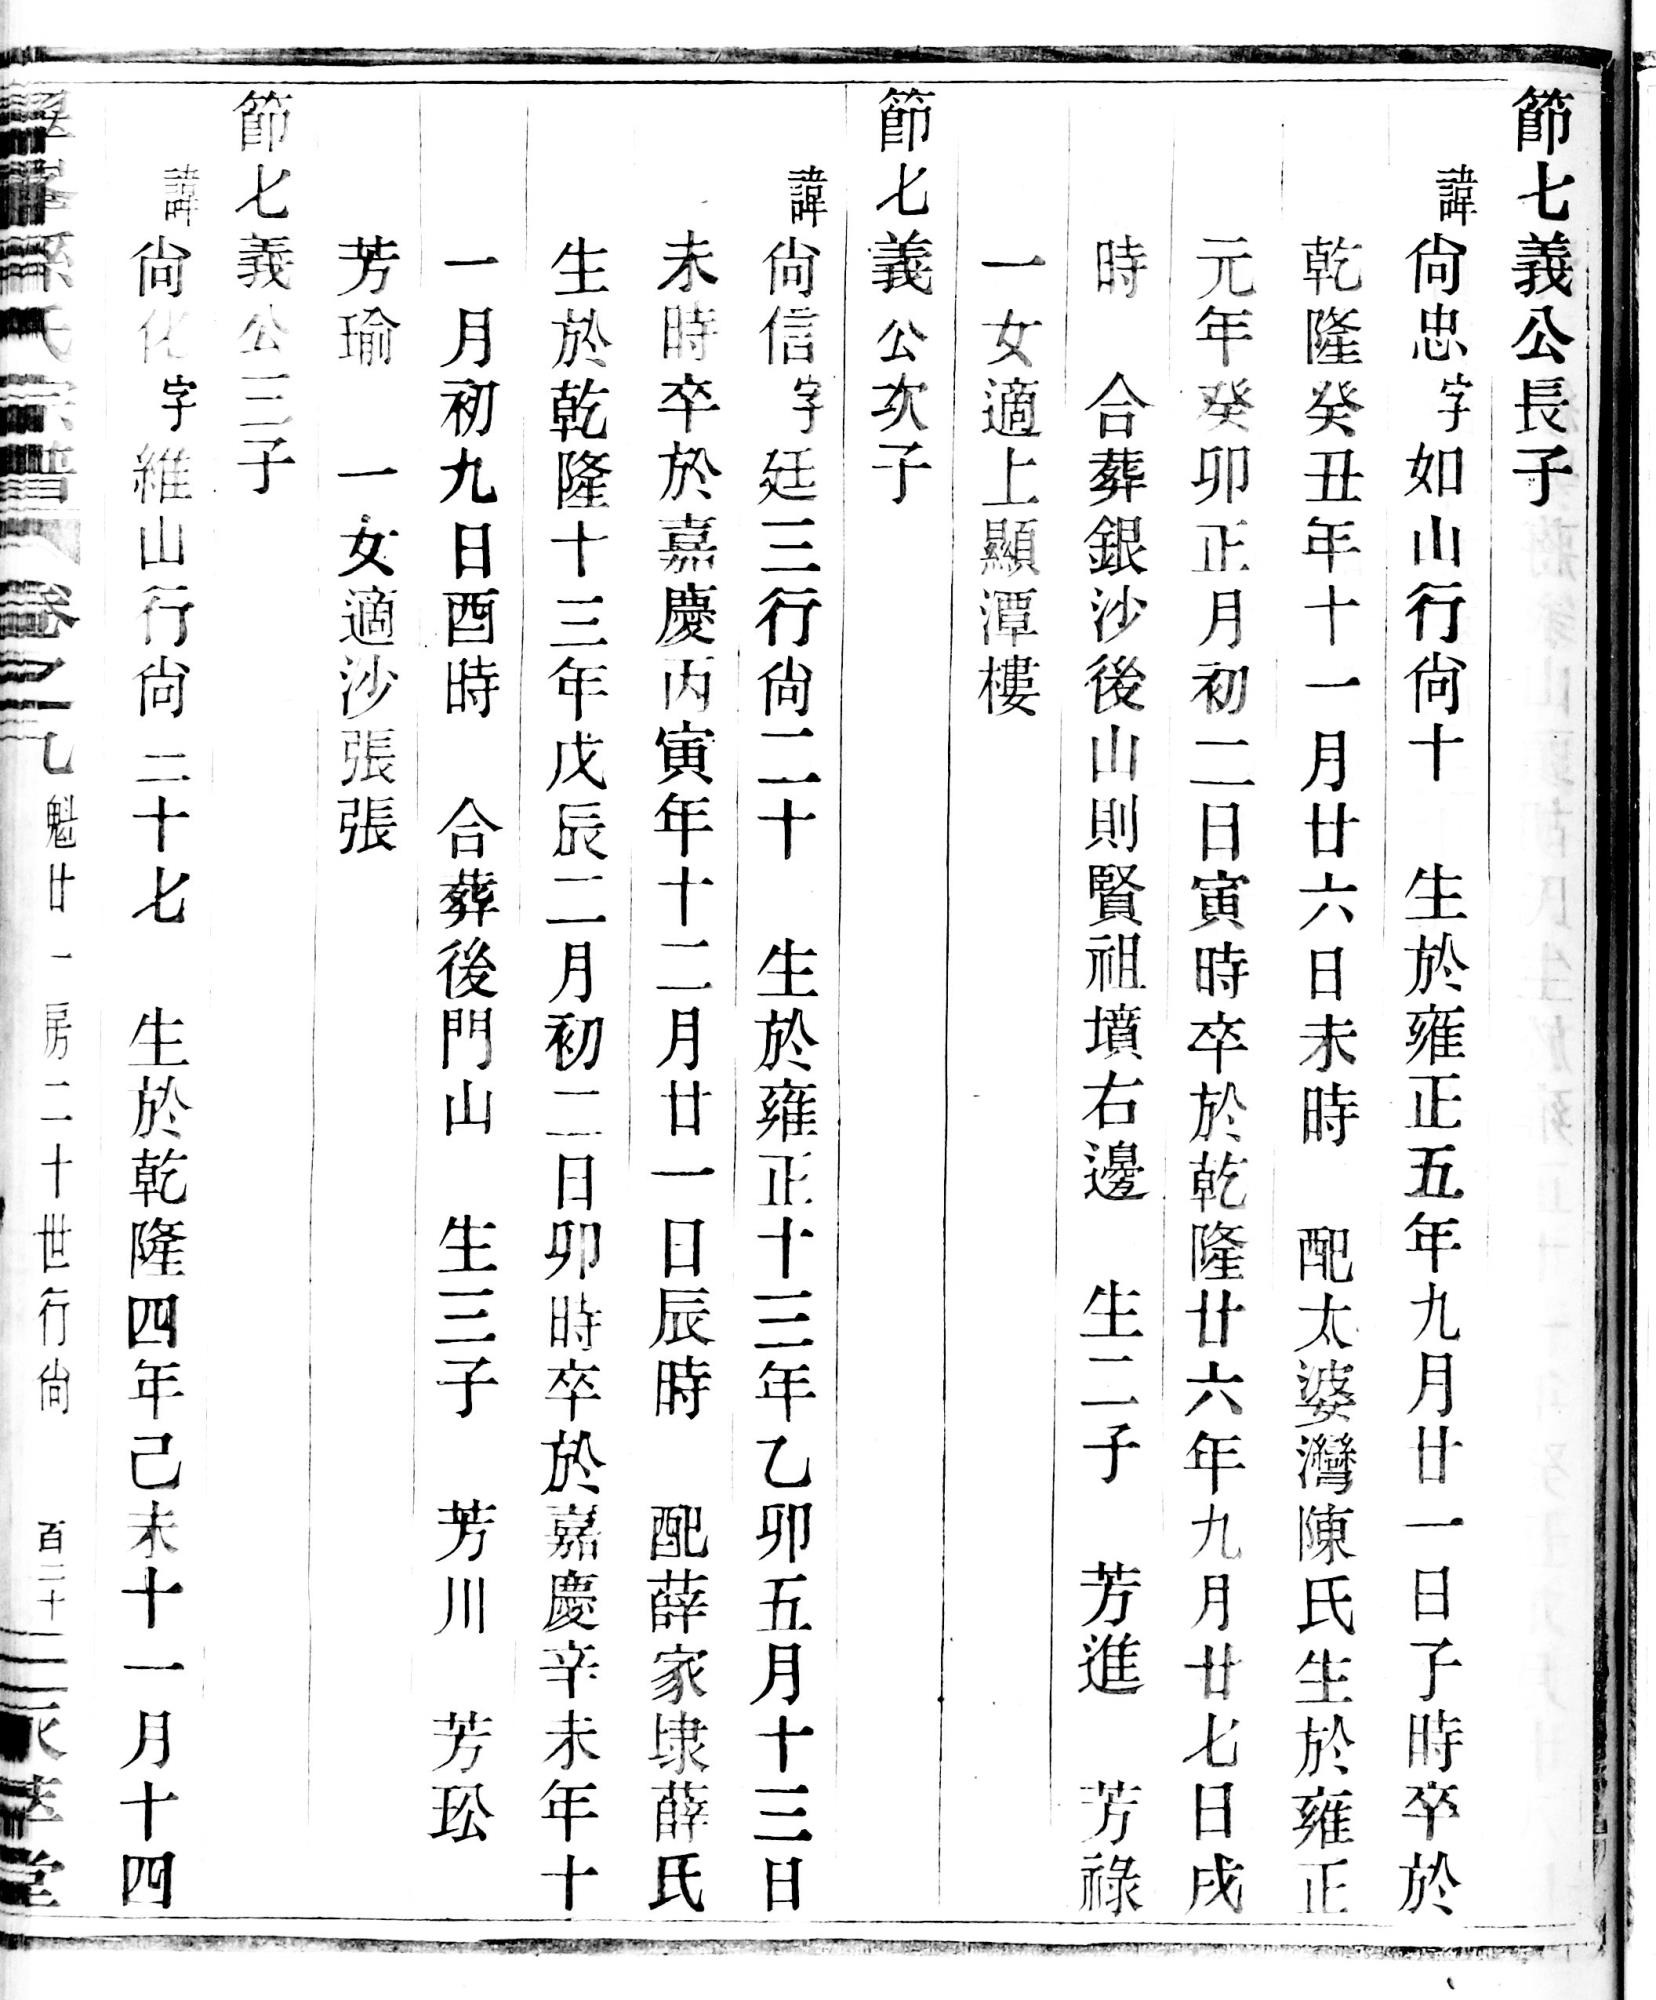 節七義公長子
諱尙忠字如山行尙十　生於雍正五年九月廿一日子時卒於
乾隆癸丑年十一月廿六日未時　配太婆灣陳氏生於雍正
元年癸卯正月初二日寅時卒於乾隆廿六年九月廿七日戌
時　合葬銀沙後山則賢祖墳右邊　生二子　芳進　芳祿
一女適上顯潭樓
節七義公次子
諱尙信字廷三行尙二十　生於雍正十三年乙卯五月十三日
未時卒於嘉慶丙寅年十二月廿一日辰時　配薛家埭薛氏
生於乾隆十三年戊辰二月初二日卯時卒於嘉慶辛未年十
一月初九日酉時　合葬後門山　生三子　芳川　芳玜
芳瑜　一女適沙張張
節七義公三子
諱尙化字維山行尙二十七　生於乾隆四年己未十一月十四
孫氏宗譜　卷之九　魁廿一房二十世行尙　百二十　堂